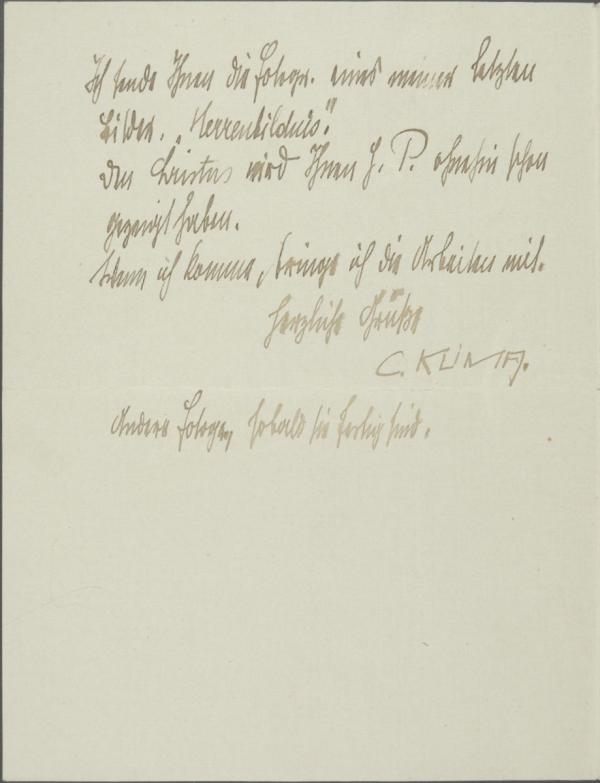 Ich sende Ihnen die Fotogr. eines meiner letzten
Bilder. „Herrenbildnis".
Den Cristus wird Ihnen H. P. ohnehin schon
gezeigt haben.
Wenn ich komme, bringe ich die Arbeiten mit.
Herzliche Grüße
C. KLIMA.
Andere Fotogr, sobald sie fertig sind.